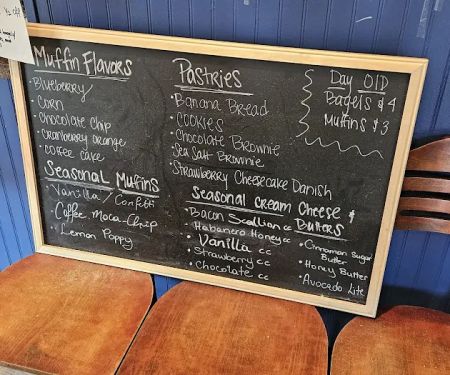 Muffin Flavors
· Blueberry
· Corn
· Chocolate Chip
· Cranberry orange
· Coffee cake
Seasonal Muffins
· Vanilla / Confetti
· Coffee Moca-Chip
· Lemon Poppy
Pastries
· Banana Bread
· COOKIES
· Chocolate Brownie
· Sea Salt Brownie
· Strawberry Cheesecake Danish
Seasonal Cream Cheese &
Butters
· Bacon Scallion cc
· Habanero Honey cc
· Vanilla cc
· Strawberry cc
· Chocolate cc
· Cinnamon Sugar
Butter
· Honey Butter
· Avocado Lite
Day OlD
Bagels $4
Muffins $3